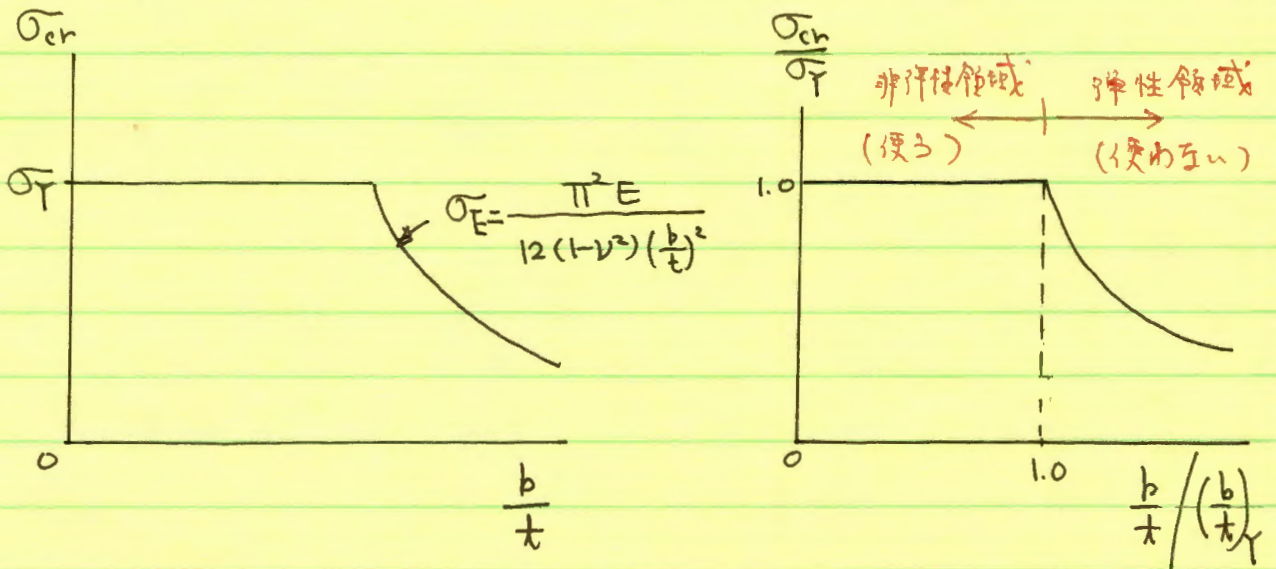 σcr
σY
σE = π²E / 12(1-ν²)(b/t)²
0
b/t
σcr/σY
非弾性領域
弾性領域
(使う)
(使わない)
1.0
0
1.0
b/t / (b/t)Y